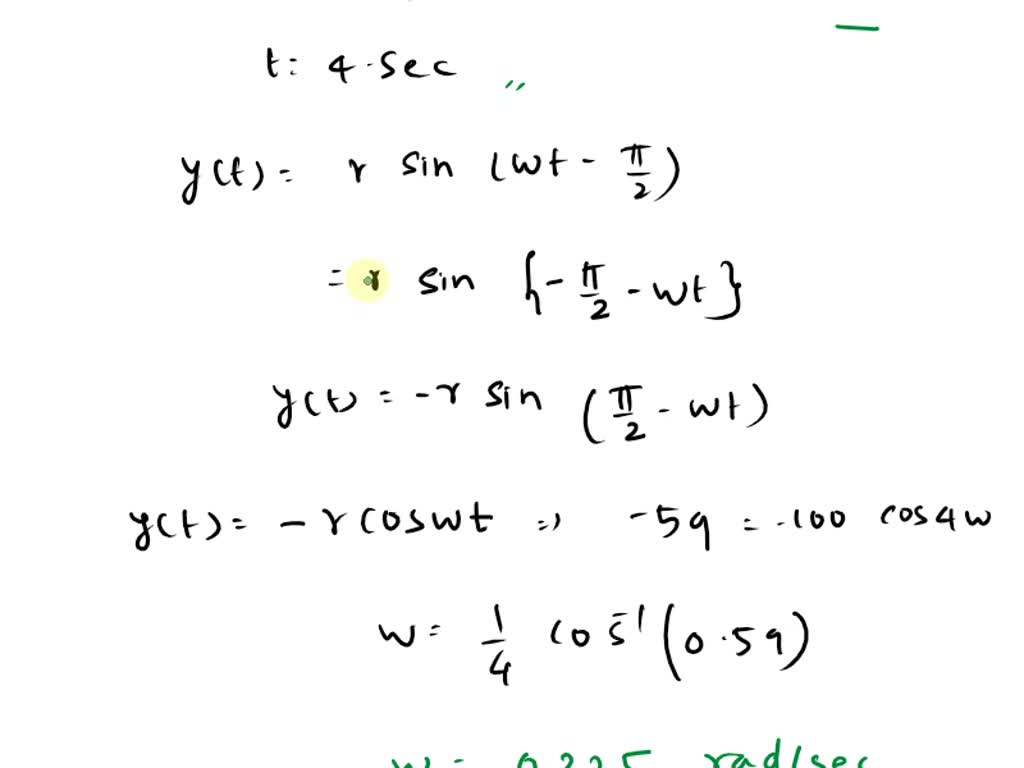 t: 4 sec "
y(t) = r sin (wt - π/2)
= r sin {-π/2 - wt}
y(t) = -r sin (π/2 - wt)
y(t) = -r cos wt => -59 = -100 cos 4w
w = 1/4 cos⁻¹ (0.59)
w = 0.225 rad/sec